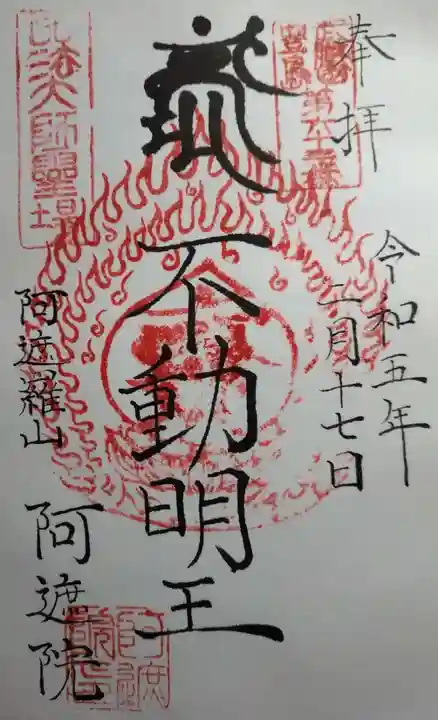 奉拝
令和五年
二月十七日
不動明王
弘法大師霊場
阿遮羅山
阿遮院